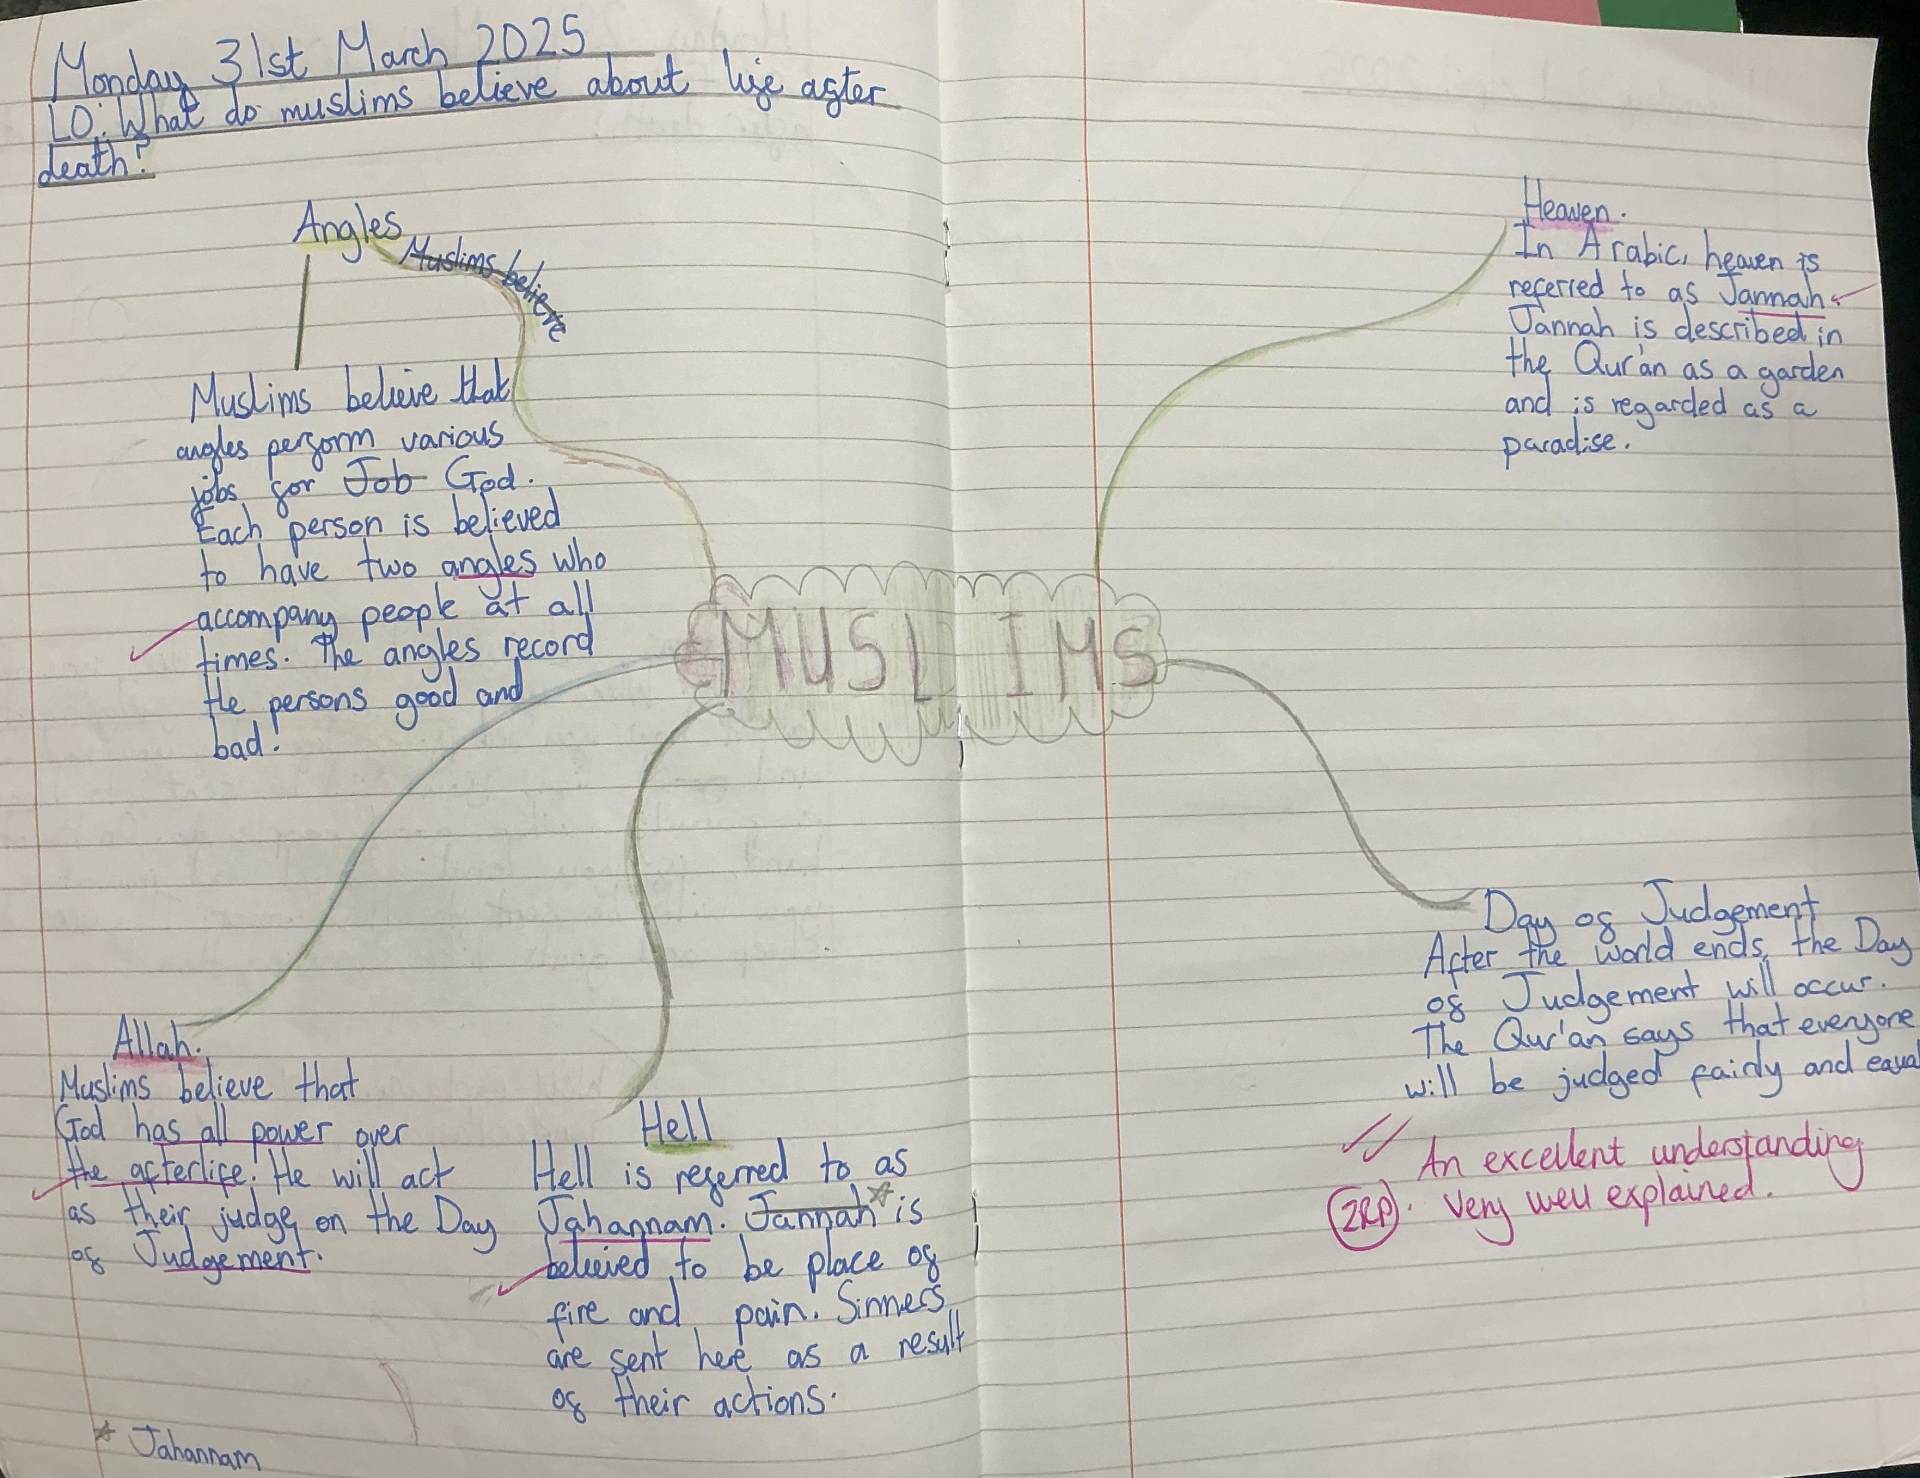 Monday 31st March 2025
LO: What do muslims believe about life after
death?
Angles
Muslims believe
Muslims believe that
angles perform various
jobs for Job God.
Each person is believed
to have two angles who
accompany people at all
times. The angles record
the persons good and
bad!
MUSLIMS
Heaven.
In Arabic, heaven is
referred to as Jannah
Jannah is described in
the Qur'an as a garden
and is regarded as a
paradise.
Allah.
Muslims believe that
God has all power over
the afterlife. He will act
as their judge on the Day
of Judgement.
Hell
Hell is referred to as
Jahannam. Jannah* is
believed to be place of
fire and pain. Sinners
are sent here as a result
of their actions.
* Jahannam
Day of Judgement
After the world ends, the Day
of Judgement will occur.
The Qur'an says that everyone
will be judged fairly and equal
An excellent understanding
2RP. Very well explained.